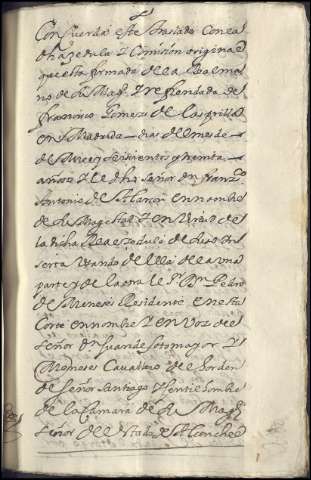 Concuerda este traslado con la
dha zedula y Comision original
que esta firmada de la Real ma
no de su Magd y refrendada de
francisco Gomez de Lasprilla
en Madrid a dias del mes de
de mill y seiscientos y treinta
años y el dho señor Don franco
Antonio de Alarcon en nombre
de su Magestad y en virtud de
la dicha Real cedula de suso in
serta usando de ella de la una
parte y de la otra el Sr Dn Pedro
de Meneses Residente en esta
Corte en nombre y en voz del
señor Dn Juan de sotomayor y
Meneses Cavallero del horden
de señor Santiago y gentilhombre
de la Camara de su Magd
señor del estado de Alconchel